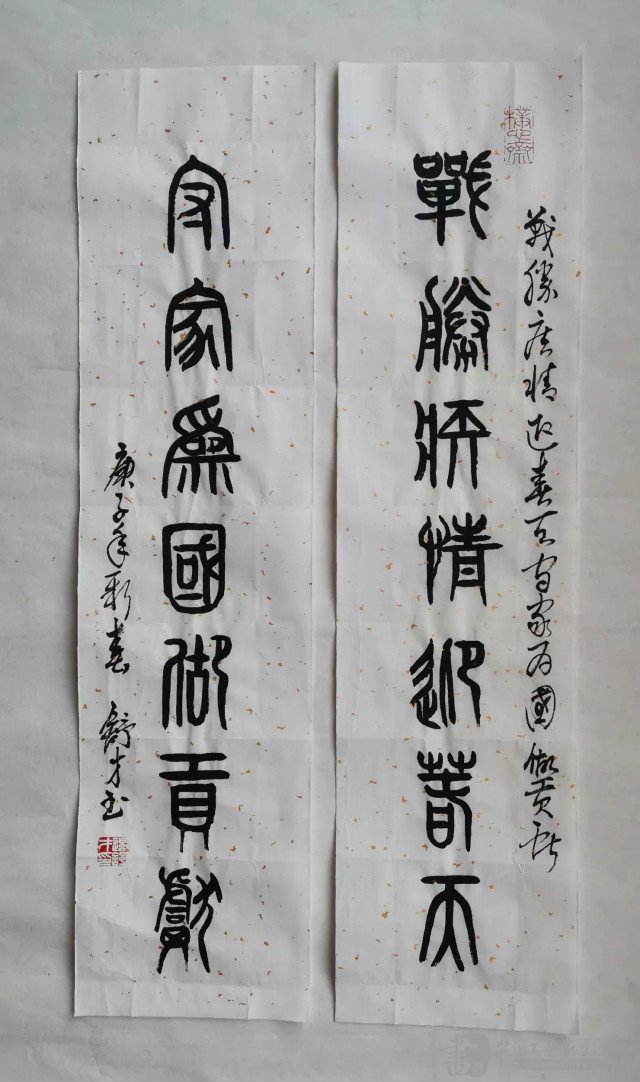 戰勝疫情迎春天守家為國做貢獻
戰勝疫情迎春天
守家為國做貢獻
庚子年新春 舒才書